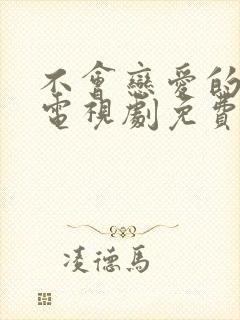 不會戀愛的
電視劇免費
凌德馬